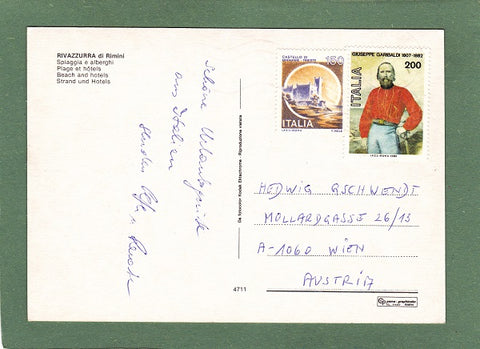 RIVAZZURRA di Rimini
Spiaggia e alberghi
Plage et hôtels
Beach and hotels
Strand und Hotels
Schöne Urlaubsgrüße
aus Italien
senden
CASTELLO DI
MIRAMARE - TRIESTE
150
ITALIA
GIUSEPPE GARIBALDI 1807-1882
200
ITALIA
HEDWIG GSCHWENDT
MOLLARDGASSE 26/13
A-1060 WIEN
AUSTRIA
Riproduzione vietata
4711